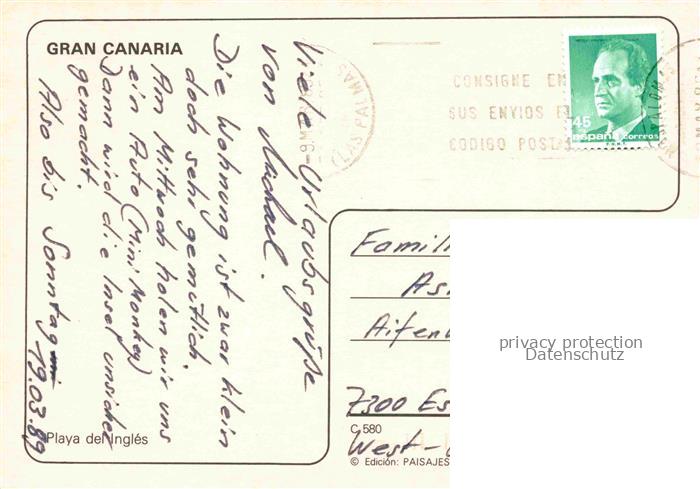 GRAN CANARIA
Viele Urlaubsgrüße
von Michael.
Die Wohnung ist zwar klein
doch sehr gemütlich.
Am Mittwoch holen wir uns
ein Auto (Mini Monkey)
Dann wird die Insel unsicher
gemacht.
Also bis Sonntag
19.03.89
Playa del Inglés
(LAS PALMAS
CONSIGNE EN
SUS ENVIOS EL
CODIGO POSTAL
45
españa correos
Famili
As
7300 Es
C 580
West-
© Edición: PAISAJES
privacy protection
Datenschutz